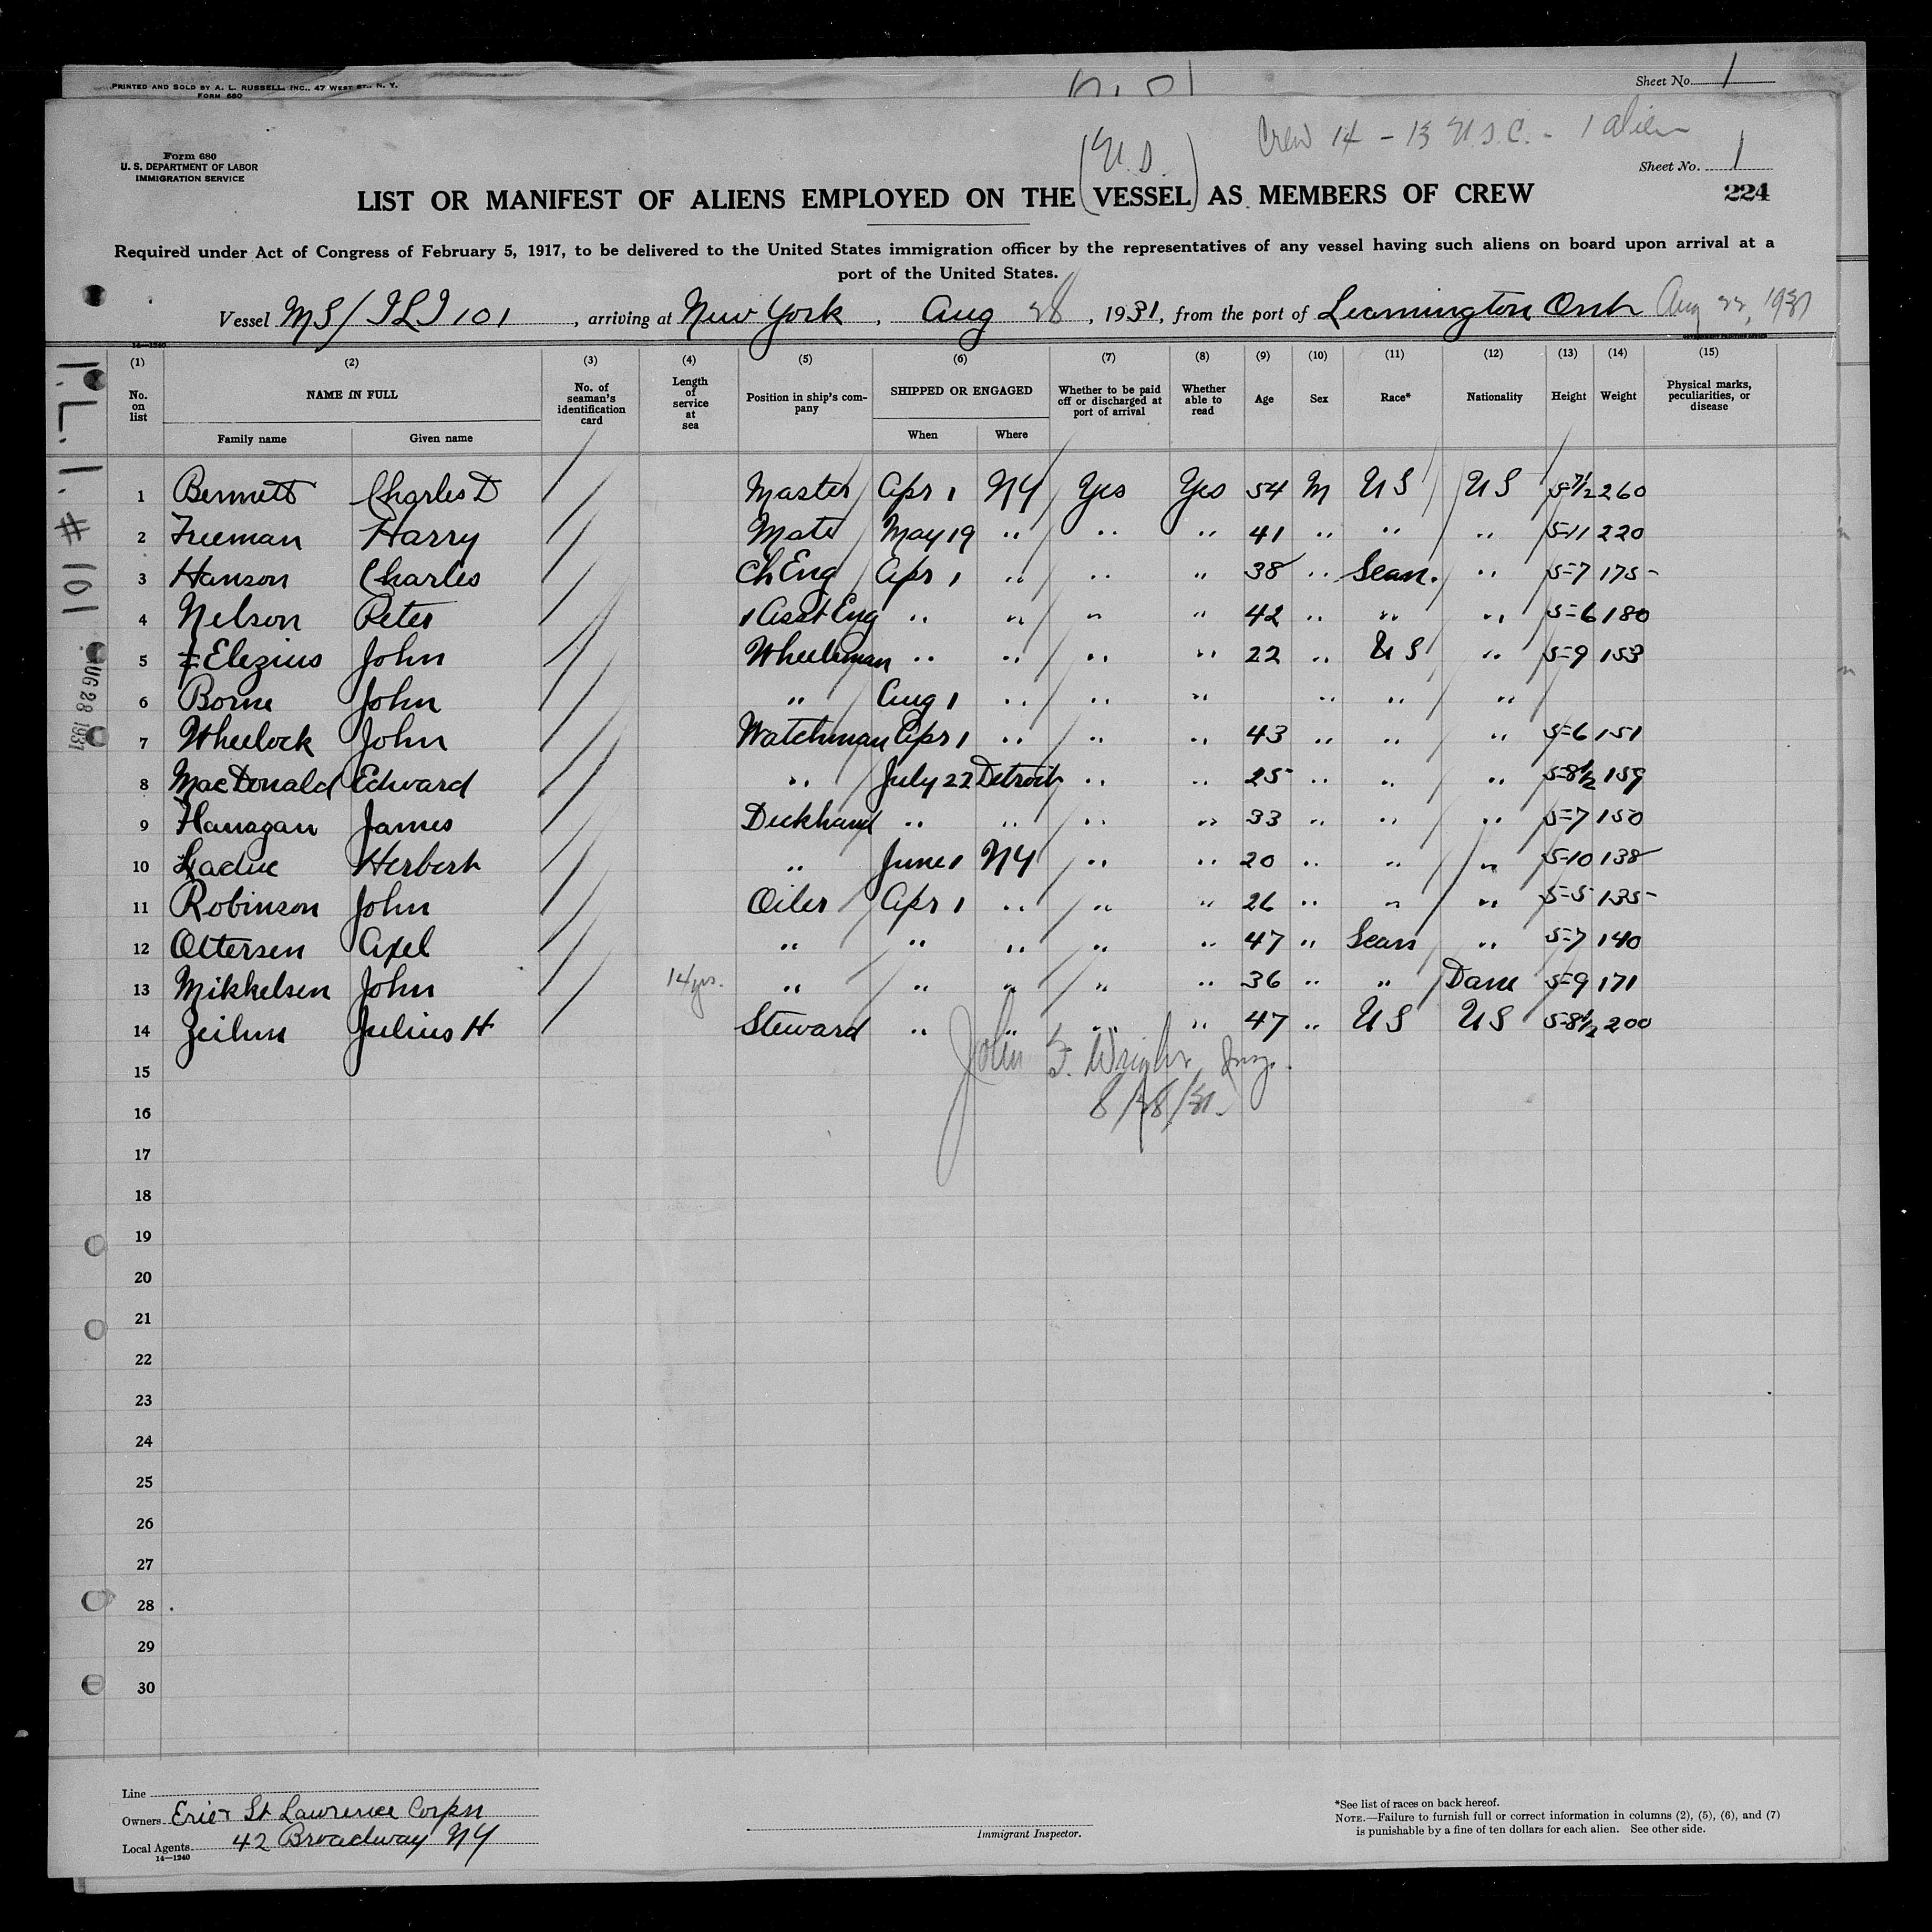 PRINTED AND SOLD BY A. L. RUSSELL, INC., 47 WEST ST., N. Y.
FORM 680
Sheet No. 1
Crew 14 - 13 U.S.C. - 1 alien
(U.S.)
Form 680
U. S. DEPARTMENT OF LABOR
IMMIGRATION SERVICE
Sheet No. 1
LIST OR MANIFEST OF ALIENS EMPLOYED ON THE VESSEL AS MEMBERS OF CREW
224
Required under Act of Congress of February 5, 1917, to be delivered to the United States immigration officer by the representatives of any vessel having such aliens on board upon arrival at a
port of the United States.
Vessel MS/ILI 101, arriving at New York, Aug 28, 1931, from the port of Leamington Ont Aug 22, 1931
14—1240
GOVERNMENT PRINTING OFFICE
(1) (2) (3) (4) (5) (6) (7) (8) (9) (10) (11) (12) (13) (14) (15)
No. on list
NAME IN FULL
Family name
Given name
No. of seaman's identification card
Length of service at sea
Position in ship's company
SHIPPED OR ENGAGED
When
Where
Whether to be paid off or discharged at port of arrival
Whether able to read
Age
Sex
Race*
Nationality
Height
Weight
Physical marks, peculiarities, or disease
1 Bennett Charles D Master Apr 1 NY Yes Yes 54 M US US 5-7½ 260
2 Freeman Harry Mate May 19 " " " 41 " " " 5-11 220
3 Hanson Charles Ch Eng Apr 1 " " " 38 " Scan. " 5-7 175
4 Nelson Peter 1 Asst Eng " " " " 42 " " " 5-6 180
5 Elezius John Wheelsman " " " " 22 " US " 5-9 153
6 Borne John " Aug 1 " " " " " "
7 Wheelock John Watchman Apr 1 " " " 43 " " " 5-6 151
8 MacDonald Edward " July 22 Detroit " " 25 " " " 5-8½ 159
9 Flanagan James Deckhand " " " " 33 " " " 5-7 150
10 Laduc Herbert " June 1 NY " " 20 " " " 5-10 138
11 Robinson John Oiler Apr 1 " " " 26 " " " 5-5 135
12 Ottersen Axel " " " " " 47 " Scan " 5-7 140
13 Mikkelsen John 14 yrs. " " " " " 36 " " Dane 5-9 171
14 Zeihm Julius H Steward " " " " 47 " US US 5-8½ 200
John F. Wright, Insp.
8/28/31.
15
16
17
18
19
20
21
22
23
24
25
26
27
28
29
30
# 101
AUG 28 1931
Line
Owners Erie & St Lawrence Corpn
Local Agents 42 Broadway NY
14—1240
Immigrant Inspector.
*See list of races on back hereof.
NOTE.—Failure to furnish full or correct information in columns (2), (5), (6), and (7)
is punishable by a fine of ten dollars for each alien. See other side.